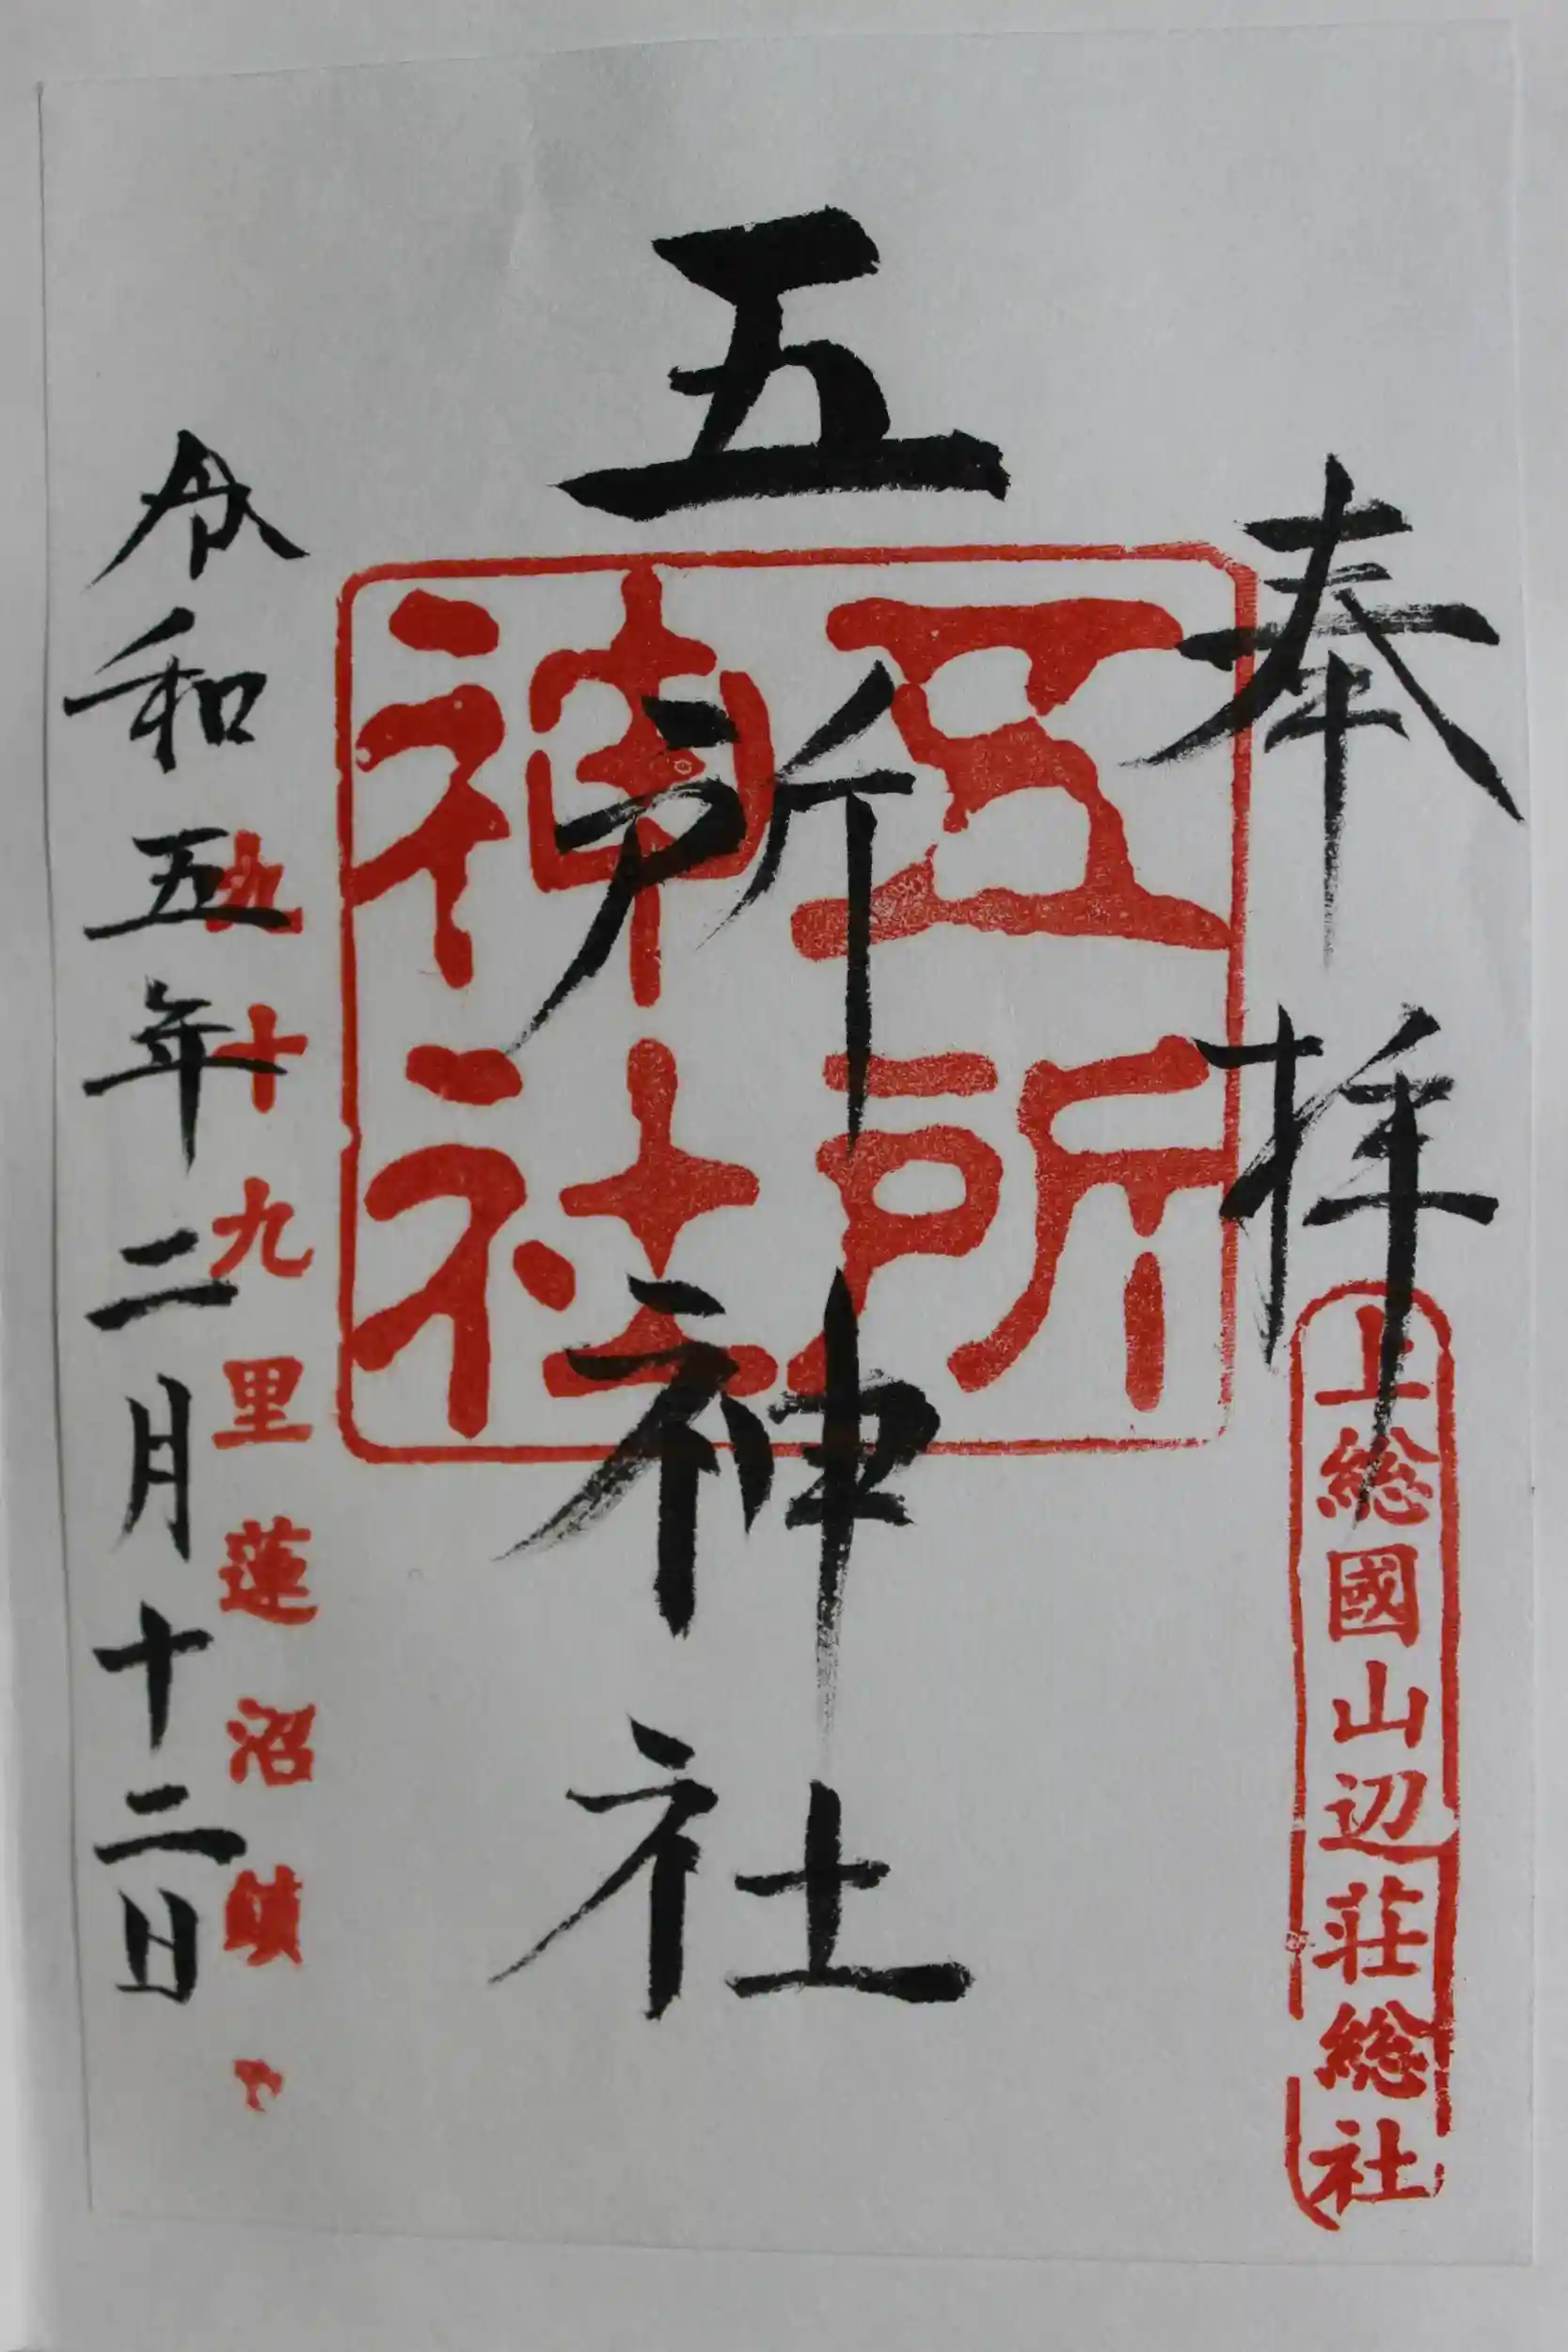 奉拝
上総國山辺荘総社
五所神社
五所神社
九十九里蓮沼
令和五年二月十二日